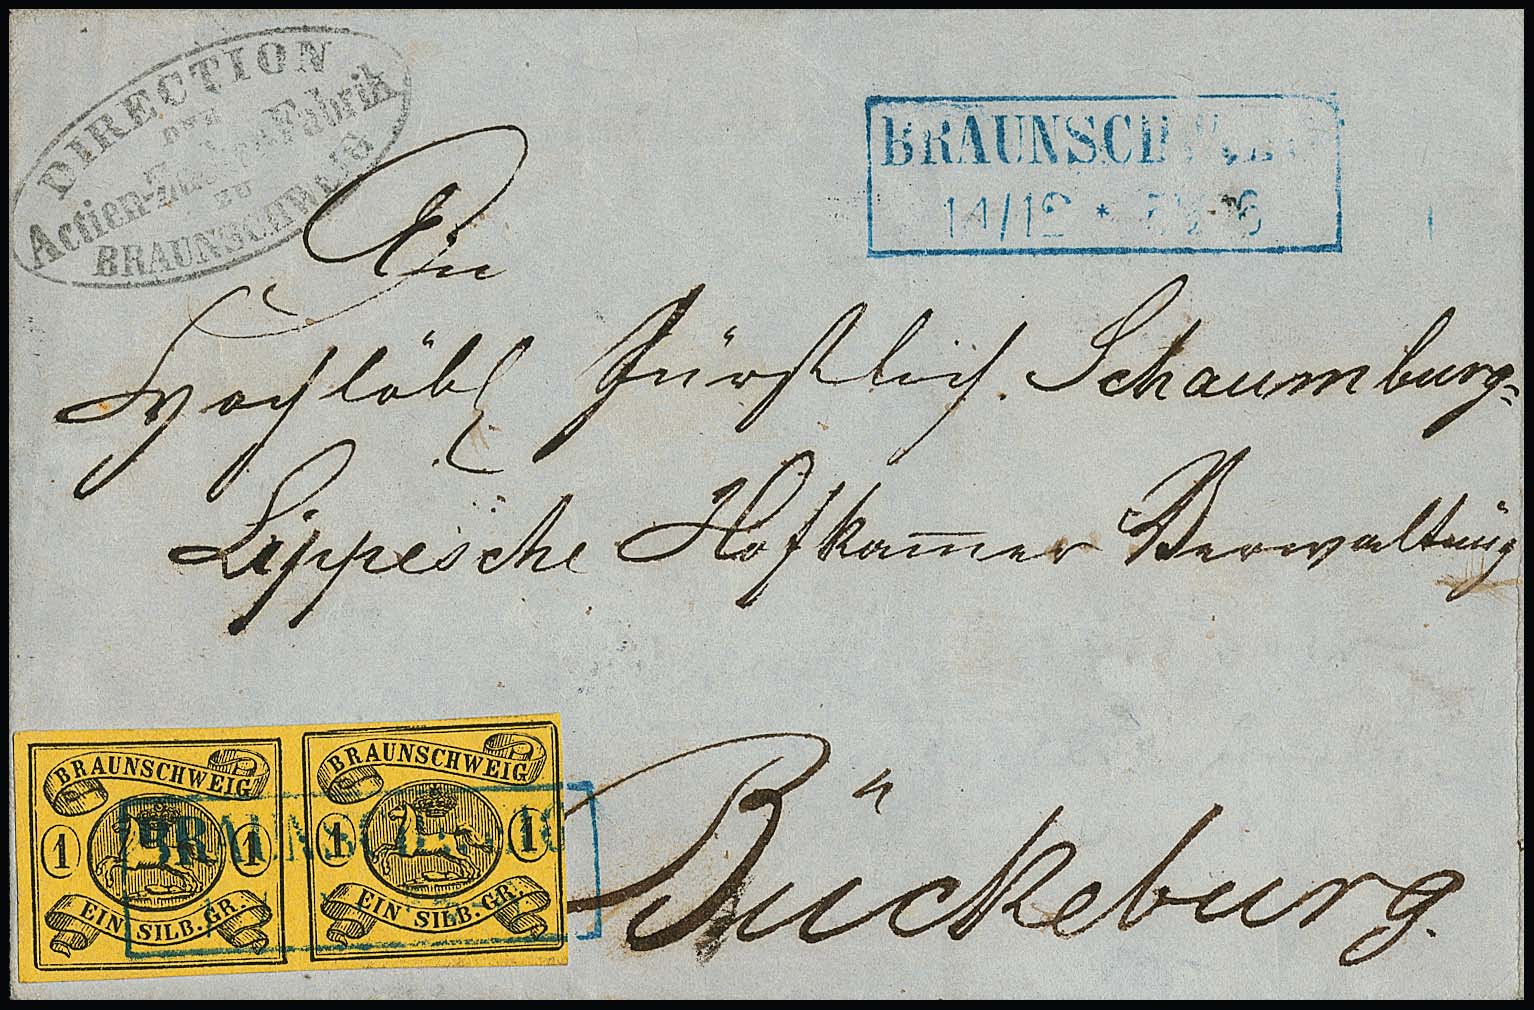 DIRECTION
DER
Actien-Zucker-Fabrik
ZU
BRAUNSCHWEIG
BRAUNSCHWEIG
14/12 *
An
Hochlöbl Fürstlich. Schaumburg=
Lippesche Hofkam̅er Verwaltung
Bückeburg.
BRAUNSCHWEIG
1 1
EIN SILB. GR.
BRAUNSCHWEIG
1 1
EIN SILB. GR.
BRAUNSCHWEIG